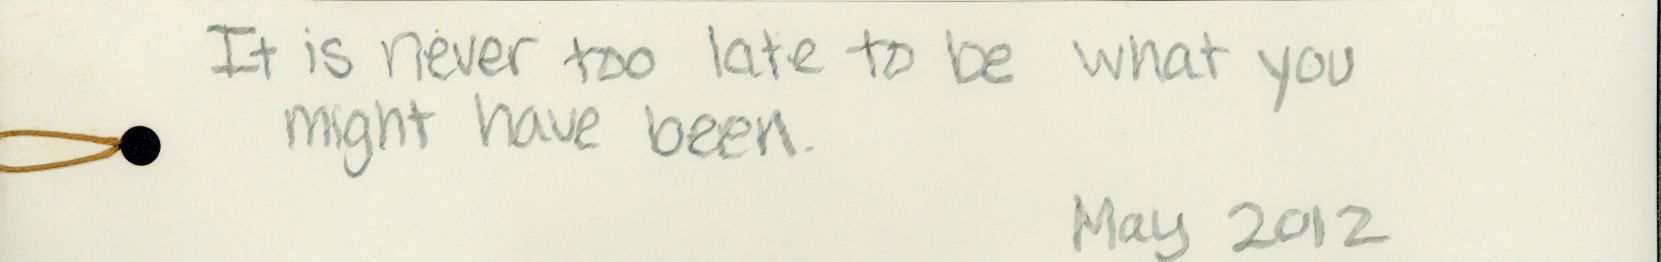 It is never too late to be what you
might have been.
May 2012